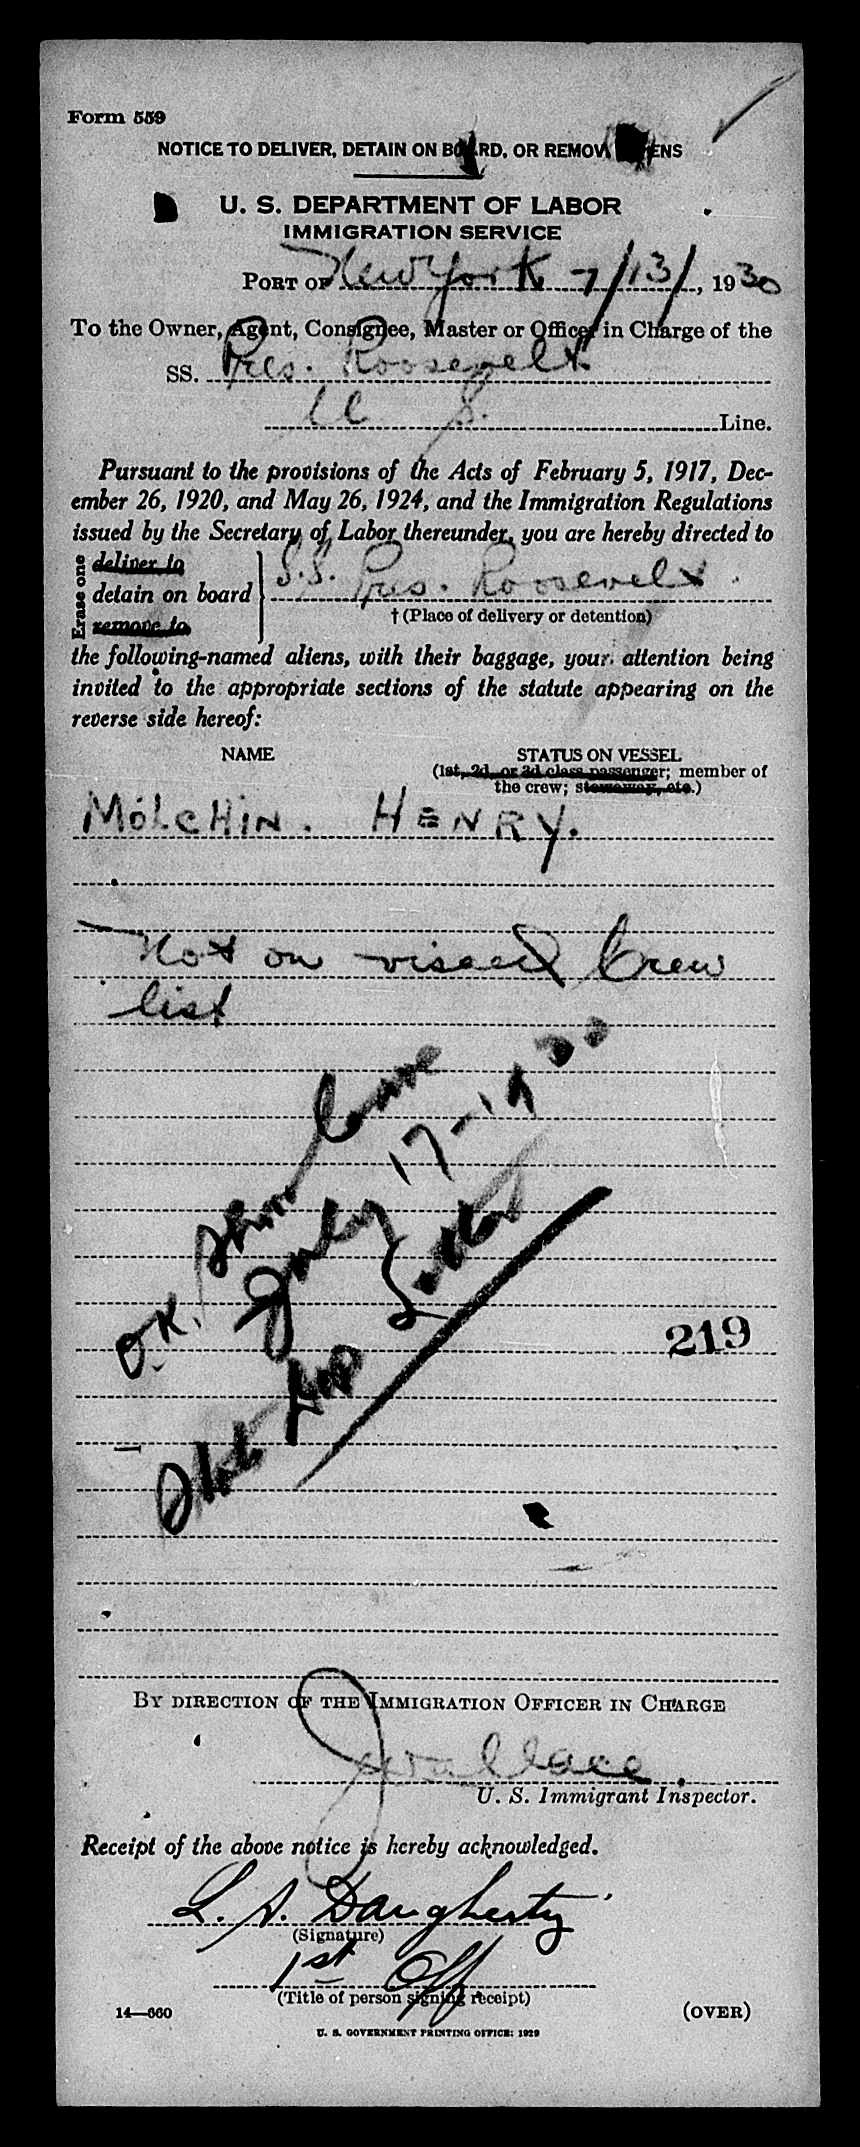 Form 559
NOTICE TO DELIVER, DETAIN ON BOARD, OR REMOVE ALIENS
U. S. DEPARTMENT OF LABOR
IMMIGRATION SERVICE
PORT OF New York 7/13/, 1930
To the Owner, Agent, Consignee, Master or Officer in Charge of the
SS. Pres. Roosevelt.
U. S. Line.
Pursuant to the provisions of the Acts of February 5, 1917, Dec-
ember 26, 1920, and May 26, 1924, and the Immigration Regulations
issued by the Secretary of Labor thereunder, you are hereby directed to
Erase one
deliver to
detain on board S.S. Pres. Roosevelt.
remove to
† (Place of delivery or detention)
the following-named aliens, with their baggage, your attention being
invited to the appropriate sections of the statute appearing on the
reverse side hereof:
NAME STATUS ON VESSEL
(1st, 2d, or 3d class passenger; member of
the crew; stowaway, etc.)
MOLCHIN. HENRY.
Not on visaed Crew
list
O.K.
July 17-1930
219
BY DIRECTION OF THE IMMIGRATION OFFICER IN CHARGE
J Wallace.
U. S. Immigrant Inspector.
Receipt of the above notice is hereby acknowledged.
L. A. Daugherty
(Signature)
1st Off.
(Title of person signing receipt)
14—660 (OVER)
U. S. GOVERNMENT PRINTING OFFICE: 1929